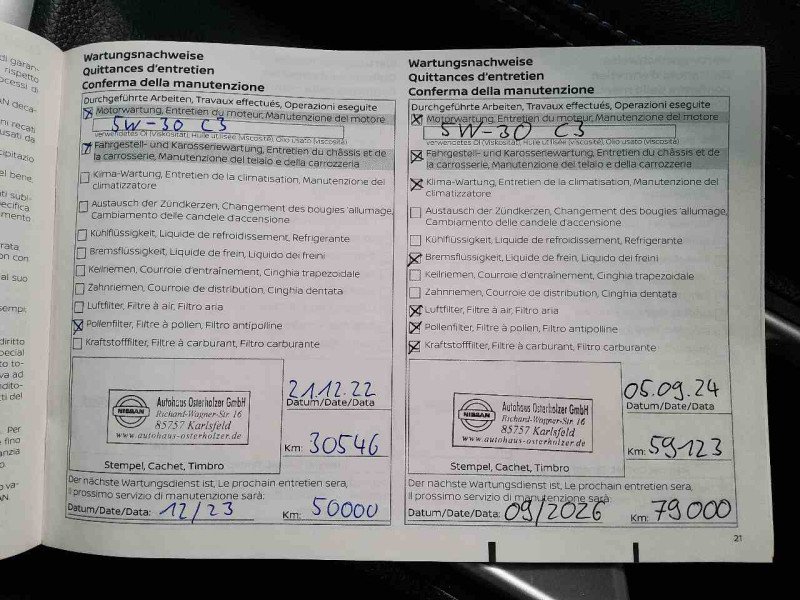 Wartungsnachweise
Quittances d'entretien
Conferma della manutenzione
Durchgeführte Arbeiten, Travaux effectués, Operazioni eseguite
Motorwartung, Entretien du moteur, Manutenzione del motore
5W-30 C3
verwendetes Öl (Viskosität), Huile utilisée (viscosité), Olio usato (viscosità)
Fahrgestell- und Karosseriewartung, Entretien du châssis et de
la carrosserie, Manutenzione del telaio e della carrozzeria
Klima-Wartung, Entretien de la climatisation, Manutenzione del
climatizzatore
Austausch der Zündkerzen, Changement des bougies 'allumage,
Cambiamento delle candele d'accensione
Kühlflüssigkeit, Liquide de refroidissement, Refrigerante
Bremsflüssigkeit, Liquide de frein, Liquido dei freini
Keilriemen, Courroie d'entraînement, Cinghia trapezoidale
Zahnriemen, Courroie de distribution, Cinghia dentata
Luftfilter, Filtre à air, Filtro aria
Pollenfilter, Filtre à pollen, Filtro antipolline
Kraftstofffilter, Filtre à carburant, Filtro carburante
NISSAN
Autohaus Osterholzer GmbH
Richard-Wagner-Str. 16
85757 Karlsfeld
www.autohaus-osterholzer.de
21.12.22
Datum/Date/Data
Km: 30546
Stempel, Cachet, Timbro
Der nächste Wartungsdienst ist, Le prochain entretien sera,
Il prossimo servizio di manutenzione sarà:
Datum/Date/Data: 12/23 Km: 50000
Wartungsnachweise
Quittances d'entretien
Conferma della manutenzione
Durchgeführte Arbeiten, Travaux effectués, Operazioni eseguite
Motorwartung, Entretien du moteur, Manutenzione del motore
5W-30 C3
verwendetes Öl (Viskosität), Huile utilisée (viscosité), Olio usato (viscosità)
Fahrgestell- und Karosseriewartung, Entretien du châssis et de
la carrosserie, Manutenzione del telaio e della carrozzeria
Klima-Wartung, Entretien de la climatisation, Manutenzione del
climatizzatore
Austausch der Zündkerzen, Changement des bougies 'allumage,
Cambiamento delle candele d'accensione
Kühlflüssigkeit, Liquide de refroidissement, Refrigerante
Bremsflüssigkeit, Liquide de frein, Liquido dei freini
Keilriemen, Courroie d'entraînement, Cinghia trapezoidale
Zahnriemen, Courroie de distribution, Cinghia dentata
Luftfilter, Filtre à air, Filtro aria
Pollenfilter, Filtre à pollen, Filtro antipolline
Kraftstofffilter, Filtre à carburant, Filtro carburante
NISSAN
Autohaus Osterholzer GmbH
Richard-Wagner-Str. 16
85757 Karlsfeld
www.autohaus-osterholzer.de
05.09.24
Datum/Date/Data
Km: 59123
Stempel, Cachet, Timbro
Der nächste Wartungsdienst ist, Le prochain entretien sera,
Il prossimo servizio di manutenzione sarà:
Datum/Date/Data: 09/2026 Km: 79000
21